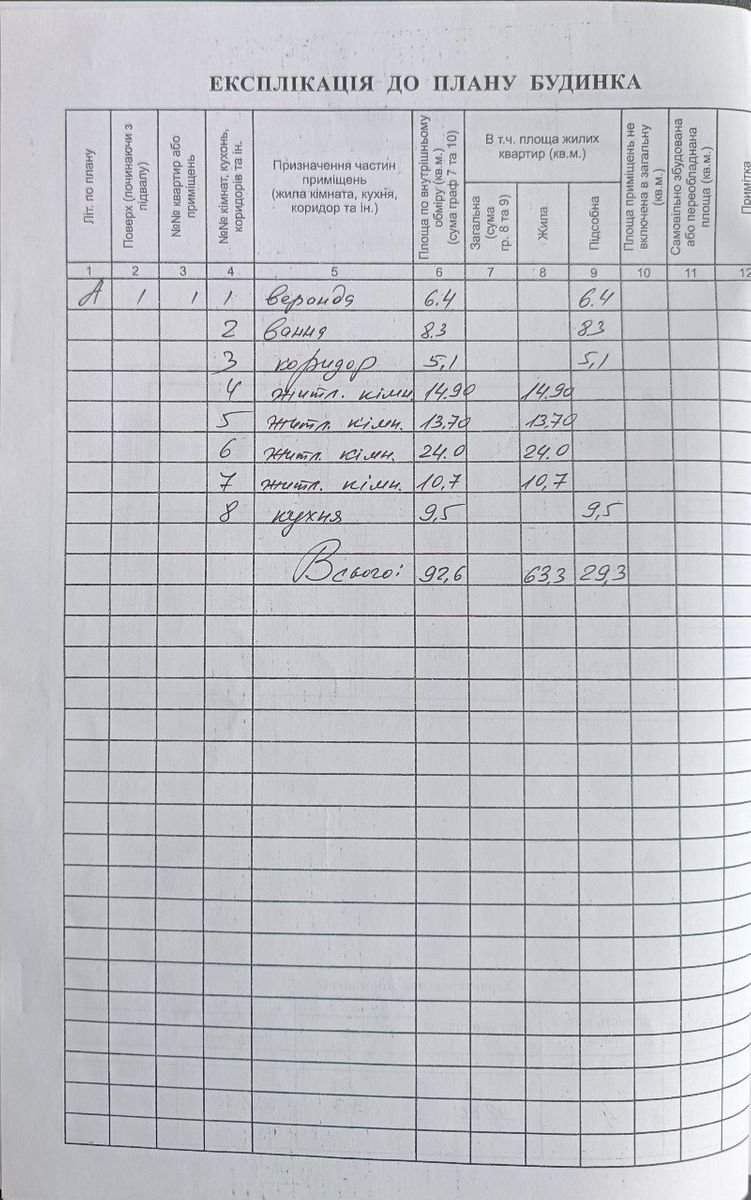 ЕКСПЛІКАЦІЯ ДО ПЛАНУ БУДИНКА
Літ. по плану
Поверх (починаючи з підвалу)
№№ квартир або приміщень
№№ кімнат, кухонь, коридорів та ін.
Призначення частин приміщень (жила кімната, кухня, коридор та ін.)
Площа по внутрішньому обміру (кв.м.) (сума граф 7 та 10)
В т.ч. площа жилих квартир (кв.м.)
Загальна (сума гр. 8 та 9)
Жила
Підсобна
Площа приміщень не включена в загальну (кв.м.)
Самовільно збудована або переобладнана площа (кв.м.)
Примітка
1 2 3 4 5 6 7 8 9 10 11 12
А 1 1 1 веранда 6.4 6.4
2 ванна 8.3 8.3
3 коридор 5,1 5,1
4 житл. кімн. 14.90 14.90
5 житл. кімн. 13.70 13.70
6 житл. кімн. 24.0 24.0
7 житл. кімн. 10,7 10,7
8 кухня 9,5 9,5
Всього: 92,6 63,3 29,3